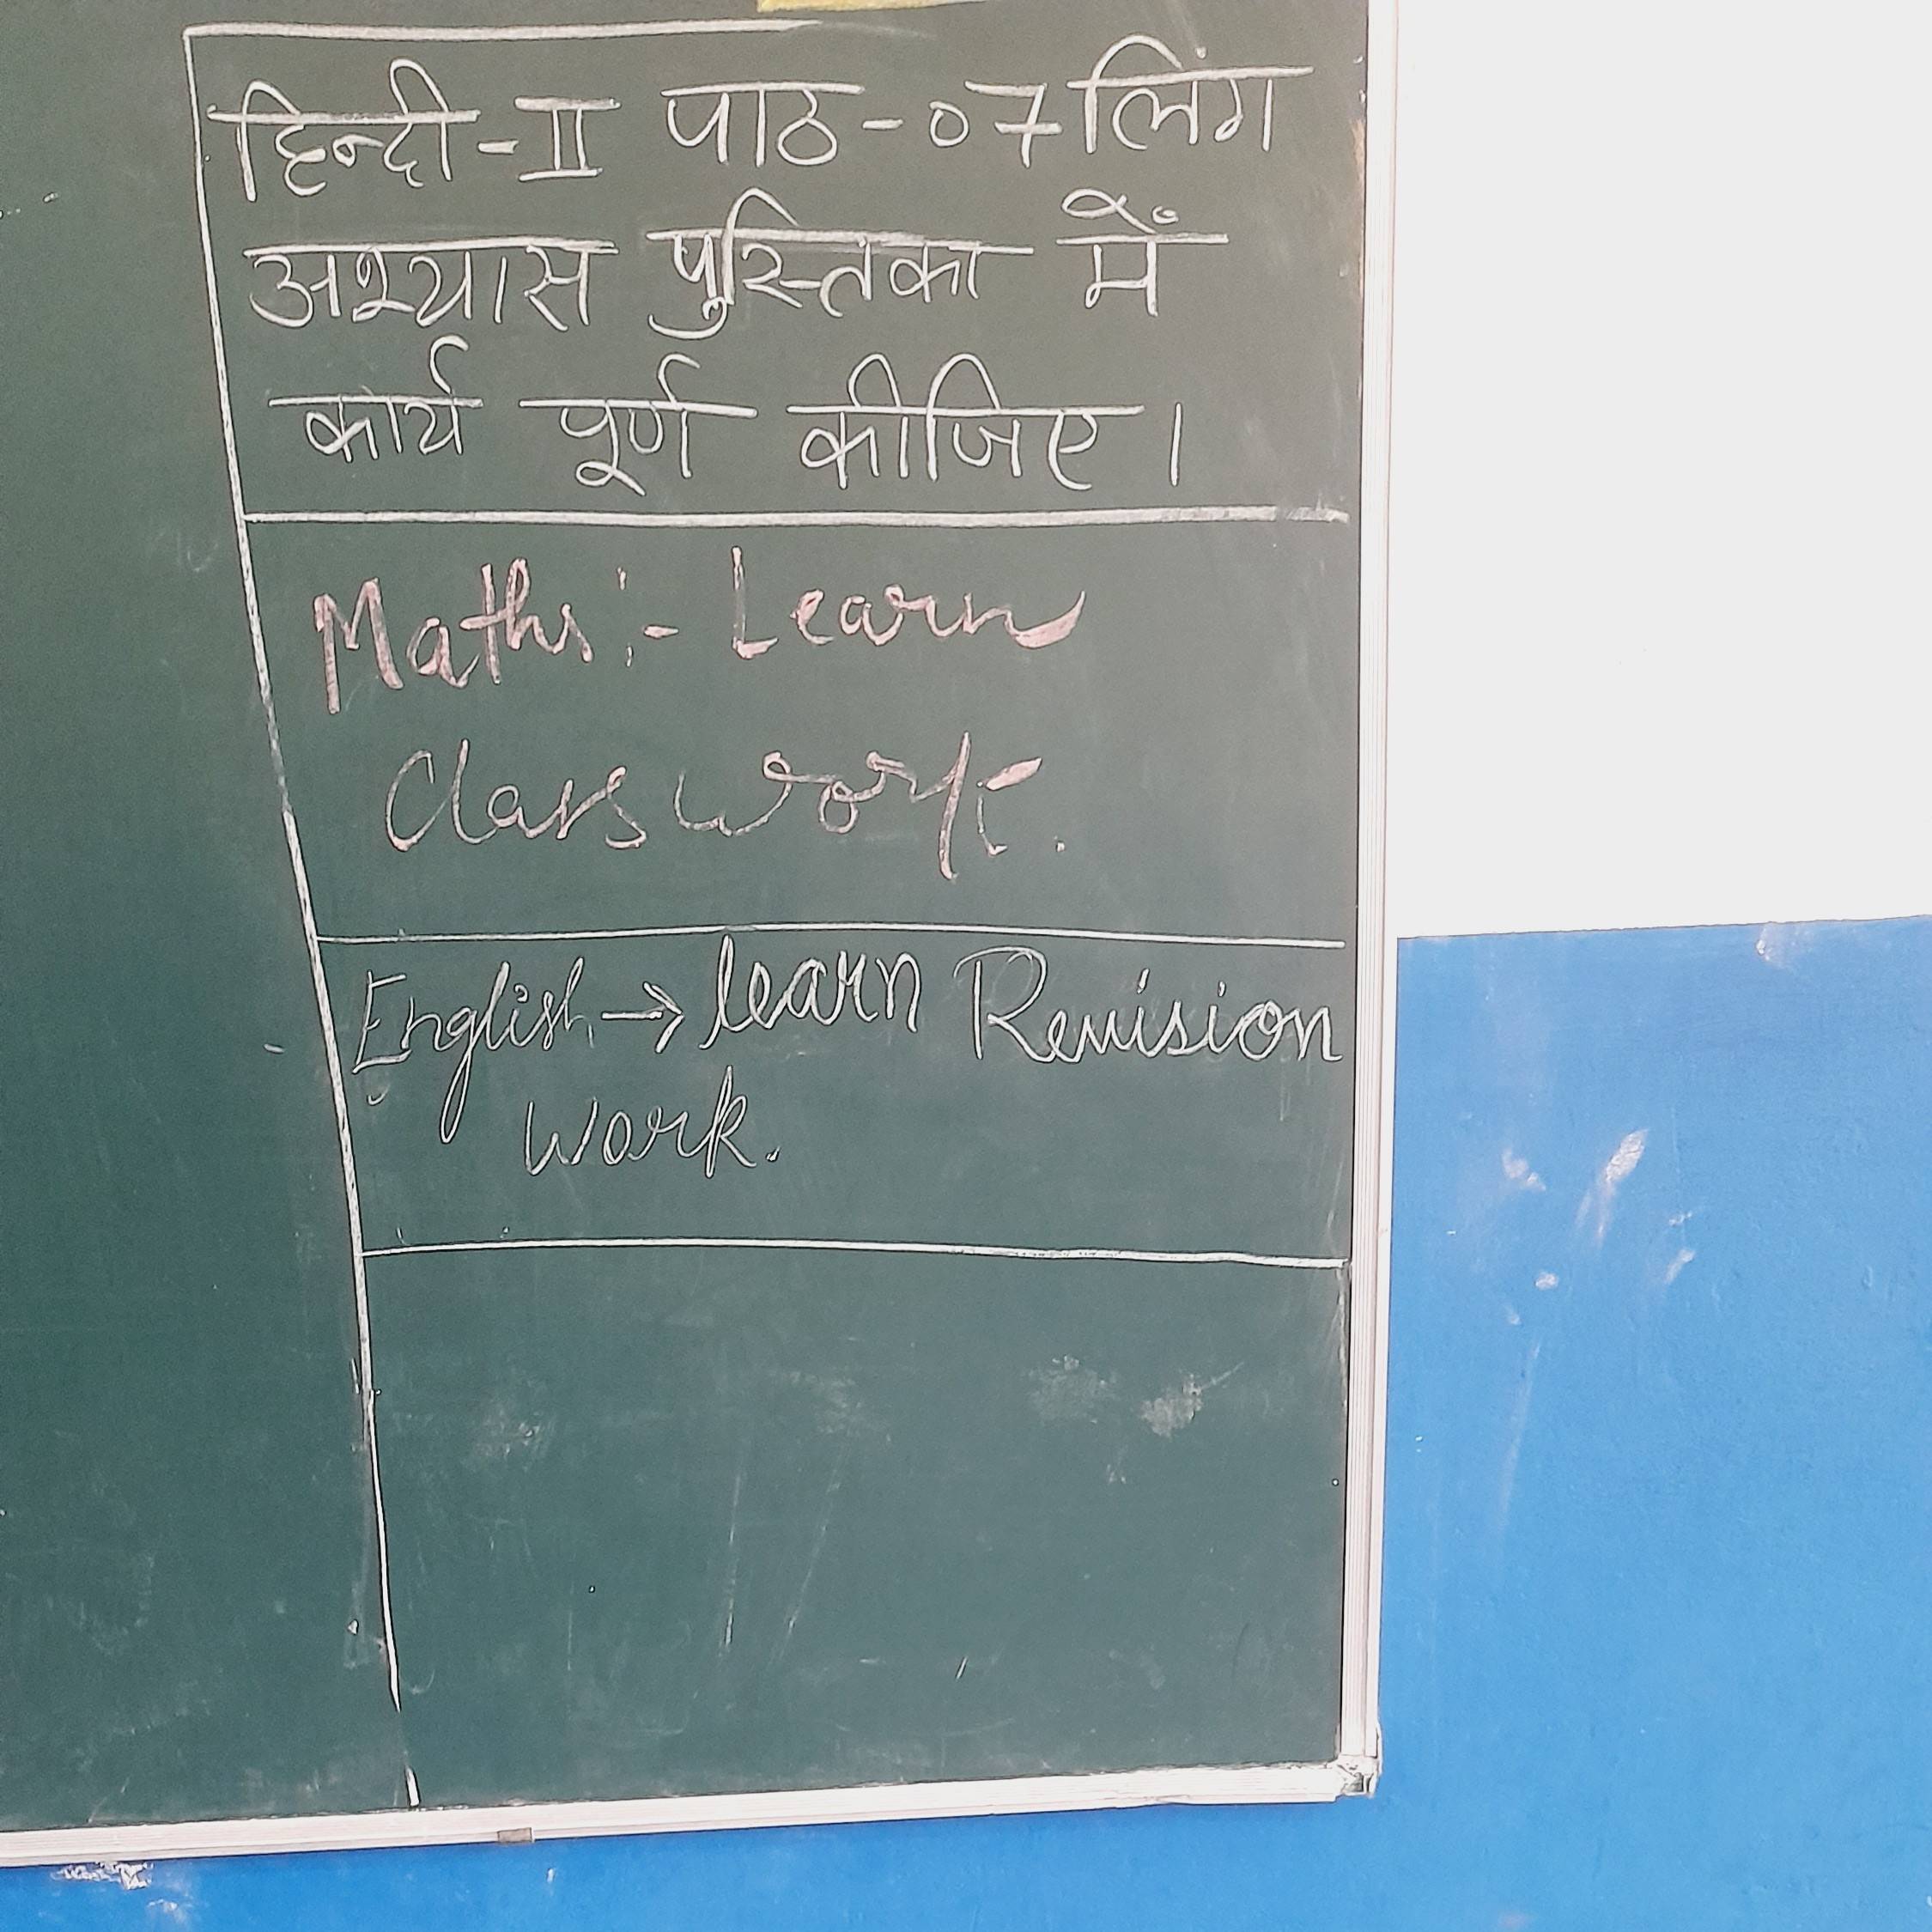 हिन्दी-II पाठ-07 लिंग
अभ्यास पुस्तिका में
कार्य पूर्ण कीजिए।
Maths:- Learn
Class work.
English → learn Revision
work.